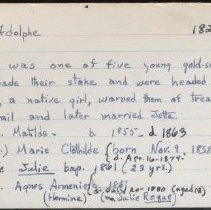 Adolphe 182
was one of five young gold-s
ade their stake and were headed
, a native girl, warned them of trea
ail and later married Jetta.
. Matilde- b. 1855- d. 1863
.) Marie Clothilde (born Nov. 9, 1858
d. Apr. 16-1874-
e Julie bap. 1861 (23 yrs.)
. Agnes Armenia b. 1861
(Hermine) d. July 20-1880 (aged 18)
(m. Julie Roque)